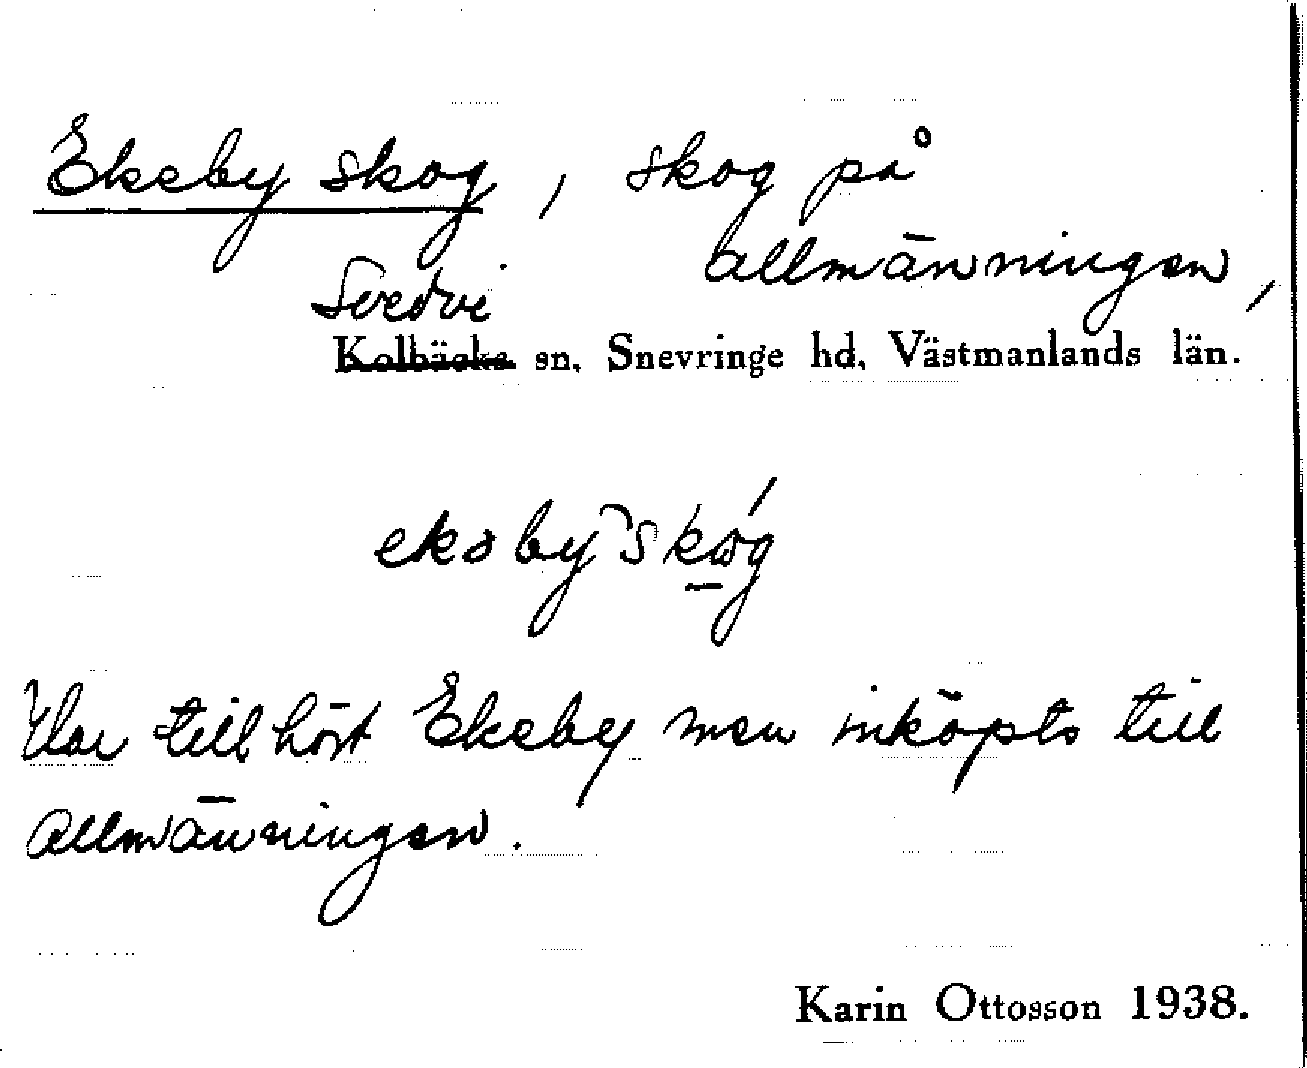 Ekeby skog, skog på
allmänningen,
Svedvi
Kolbäcks sn, Snevringe hd, Västmanlands län.
ekəby skog
Har tillhört Ekeby men inköpts till
allmänningen.
Karin Ottosson 1938.